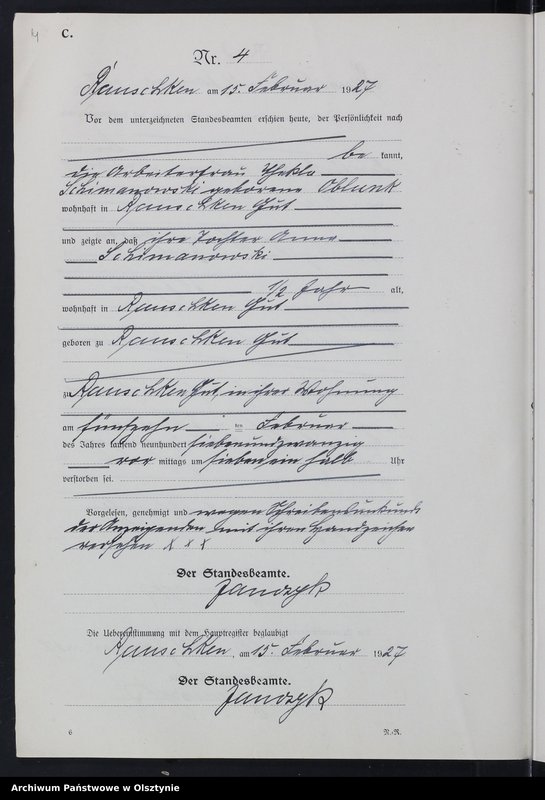 4
C.
Nr. 4
Rauschken am 15. Februar 1927
Vor dem unterzeichneten Standesbeamten erschien heute, der Persönlichkeit nach
be kannt,
die Arbeiterfrau Thekla
Schimanowski geborene Oblunk
wohnhaft in Rauschken Gut
und zeigte an, daß ihre Tochter Anna
Schimanowski
1/2 Jahr alt,
wohnhaft in Rauschken Gut
geboren zu Rauschken Gut
zu Rauschken Gut, in ihrer Wohnung
am fünfzehn ten Februar
des Jahres tausend neunhundert siebenundzwanzig
vor mittags um sieben ein halb Uhr
verstorben sei.
Vorgelesen, genehmigt und wegen Schreibensunkunde
der Anzeigenden mit ihren Handzeichen
versehen x x x
Der Standesbeamte.
Janczyk
Die Uebereinstimmung mit dem Hauptregister beglaubigt
Rauschken, am 15. Februar 1927
Der Standesbeamte.
Janczyk
6 N.-R.
Archiwum Państwowe w Olsztynie